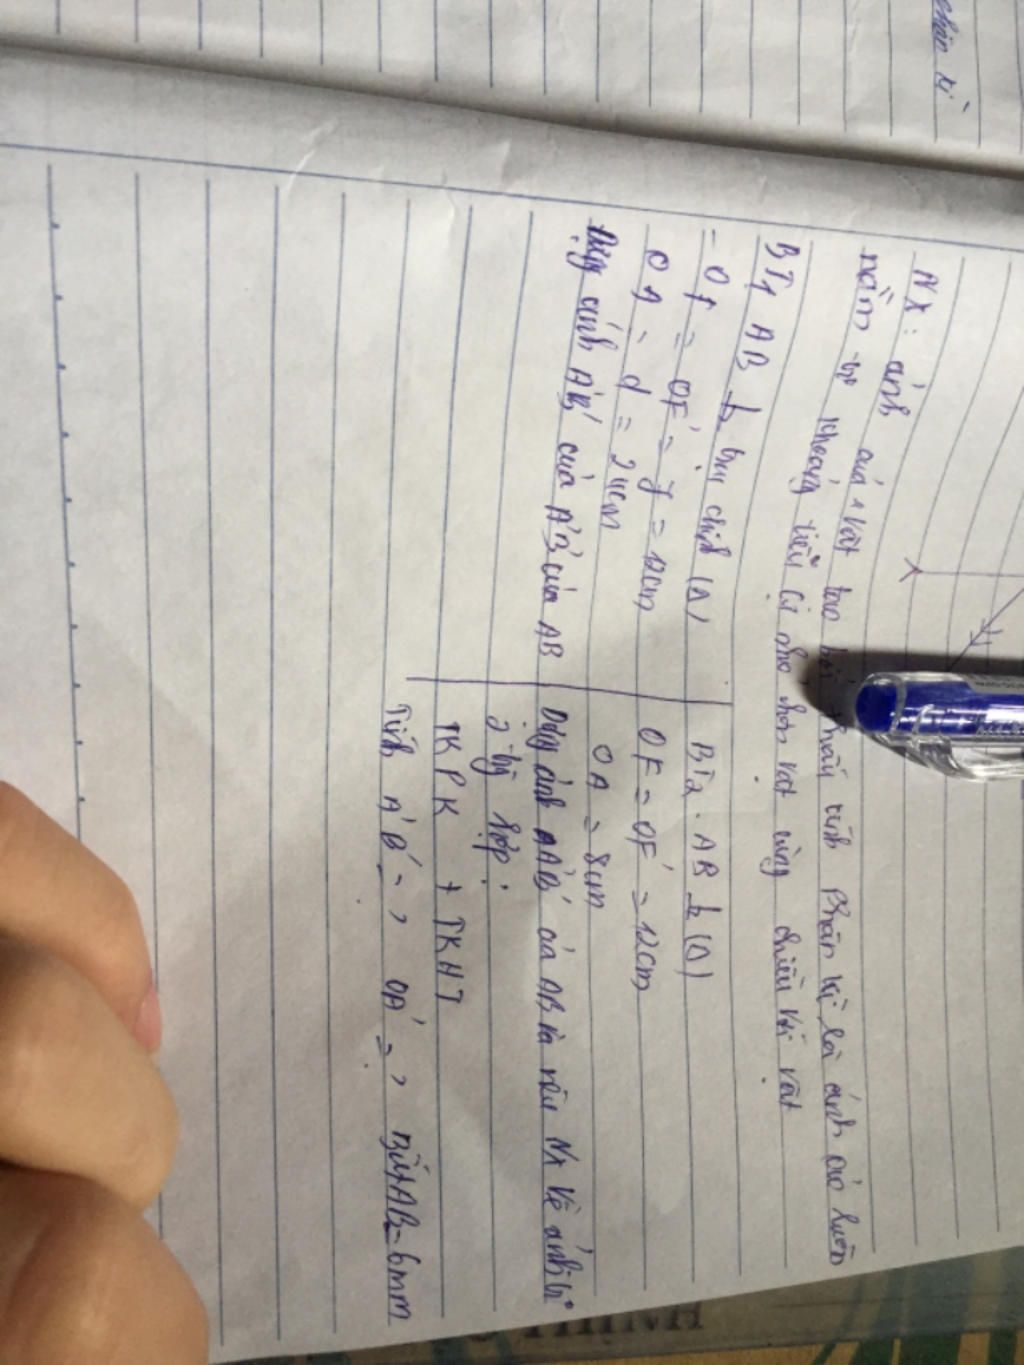 phân kì
NX: ảnh của 1 vật tạo bởi thấu kính phân kì là ảnh ảo luôn
nằm trg khoảng tiêu cự nhỏ hơn vật cùng chiều với vật
BT1 AB ⊥ trục chính (Δ)
- OF = OF' = f = 12cm
OA = d = 24cm
Dựng ảnh A'B' của A'B' của AB
BT2. AB ⊥ (Δ)
OF = OF' = 12cm
OA = 8cm
Dựng ảnh A'B' của AB và nêu Nx về ảnh
2 trg hợp:
TKPK + TKHT
Tính A'B' = ? OA' = ? Biết AB = 6mm